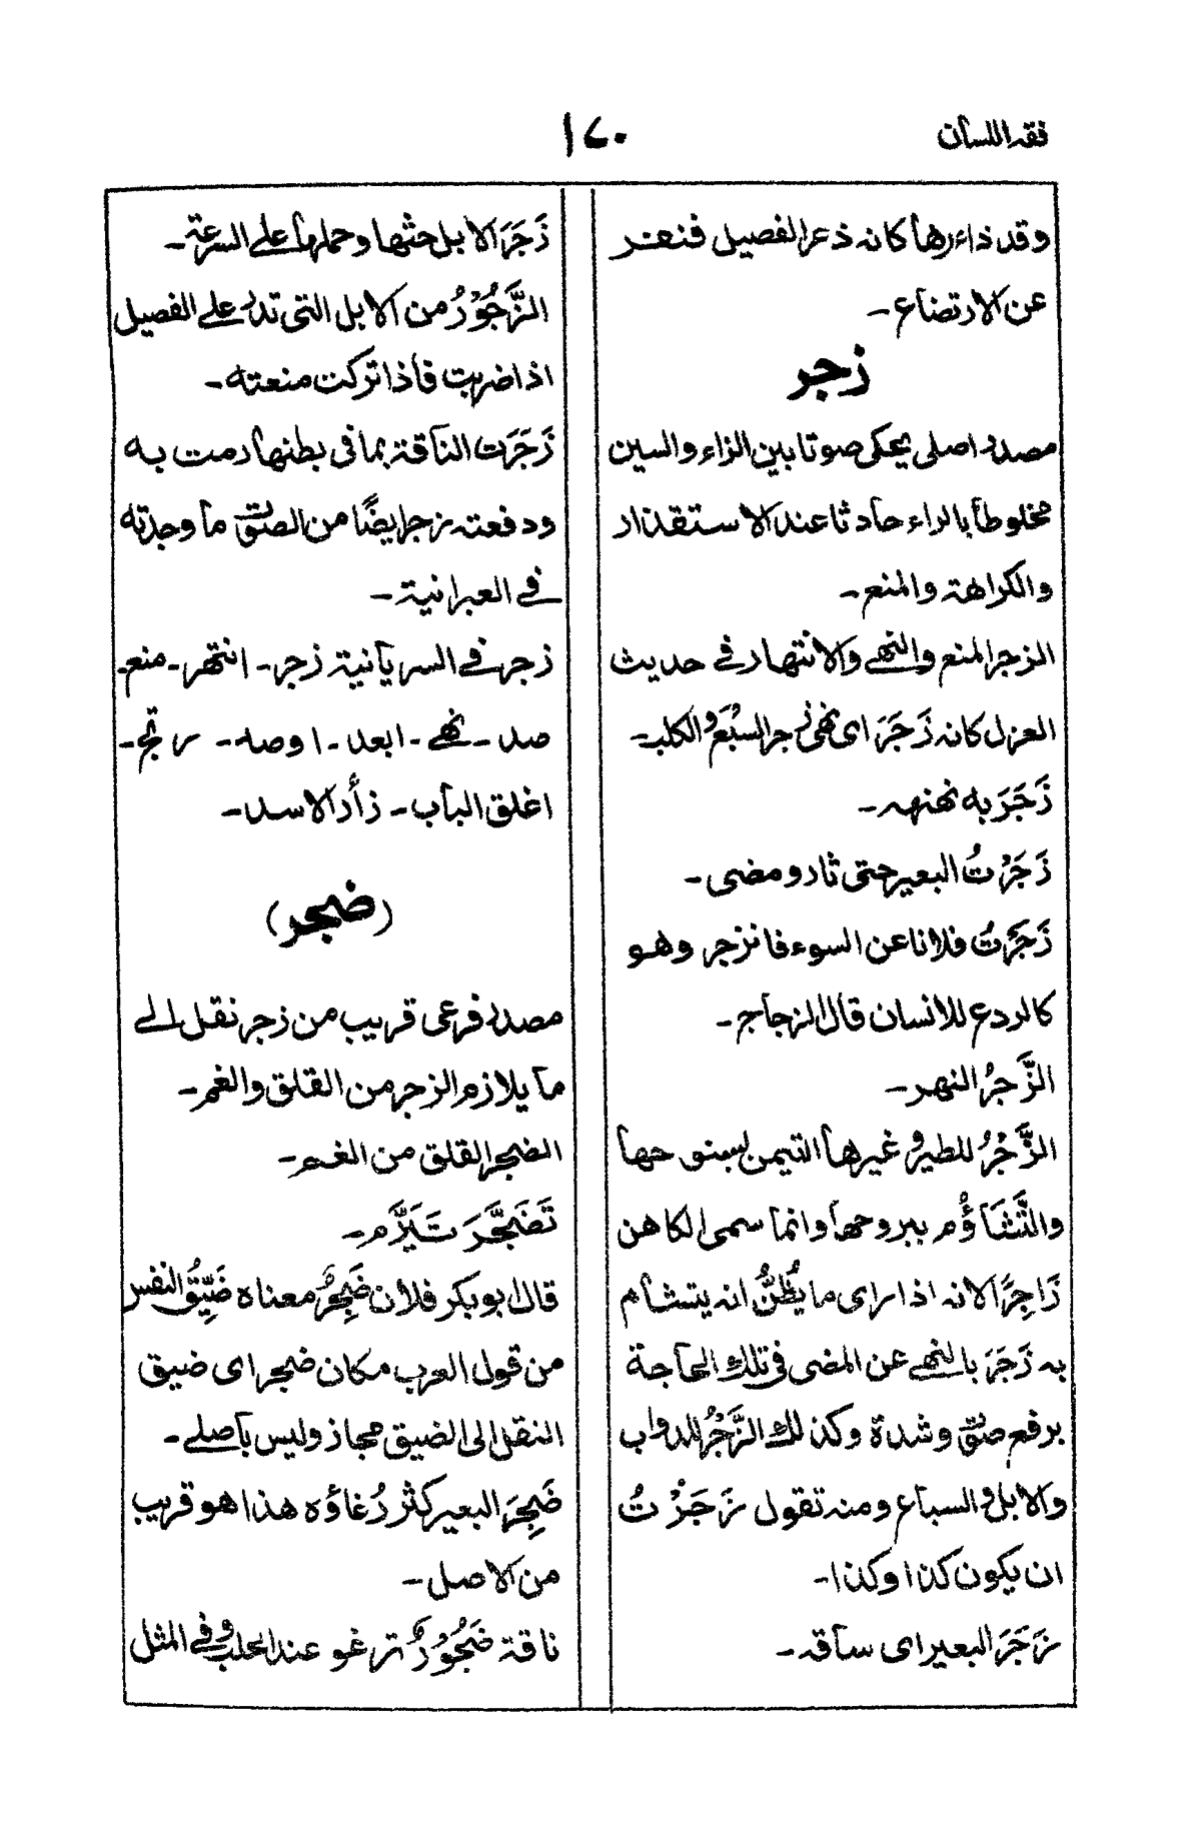 فقه اللسان
١٧٠
وقد ذاءرها كانه ذعر الفصيل فنعر
عن الارتضاع -
زجر
مصدر اصلى يحكى صوتا بين الزاء والسين
مخلوطا بالراء حادثا عند الاستقذار
والكراهة والمنع -
الزجر المنع والنهى والانتهار فى حديث
العزل كانه زَجَرَ اى نهى زجر السَبُعَ والكلب -
زَجَرَ به نهنهه -
زَجَرْتُ البعير حتى ثار ومضى -
زَجَرْتُ فلانا عن السوء فانزجر وهو
كالردع للانسان قال الزجاج -
الزَّجرُ النهر -
الزَّجْرُ للطير وغيرها التيمن بسنوحها
والتَّشَاؤُم ببروحها وانما سمى الكاهن
زَاجِرًا لانه اذا راى ما يُظَنُّ انه يتشام
به زَجَرَ بالنهى عن المضى فى تلك الحاجة
برفع صوت وشدة وكذلك الزَّجْرُ للدواب
والابل والسباع ومنه تقول زَجَرْتُ
ان يكون كذا وكذا -
زَجَرَ البعير اى ساقه -
زَجَرَ الابل حثها وحملها على السرعة -
الزَّجُوْرُ من الابل التى تدر على الفصيل
اذا ضربت فاذا تركت منعته -
زَجَرَت الناقة بما فى بطنها رمت به
ودفعته زجرا يضًا من الصوت ما وجدته
فى العبرانية -
زجر فى السريانية زجر - انتهر - منع -
صد - نهى - ابعد - اوصد - رتج -
اغلق الباب - زأر الاسد -
(ضجر)
مصدر فرعى قريب من زجر نقل الى
ما يلازم الزجر من القلق والغم -
الضجر القلق من الغم -
تَضَجَّرَ تَبَرَّم -
قال ابو بكر فلان ضَجِرٌ معناه ضَيِّقُ النفس
من قول العرب مكان ضجر اى ضيق
النقل الى الضيق مجاز وليس باصلى -
ضَجِرَ البعير كثر رُغاؤه هذا هو قريب
من الاصل -
ناقة ضَجُوْرٌ ترغو عند الحلب وفى المثل